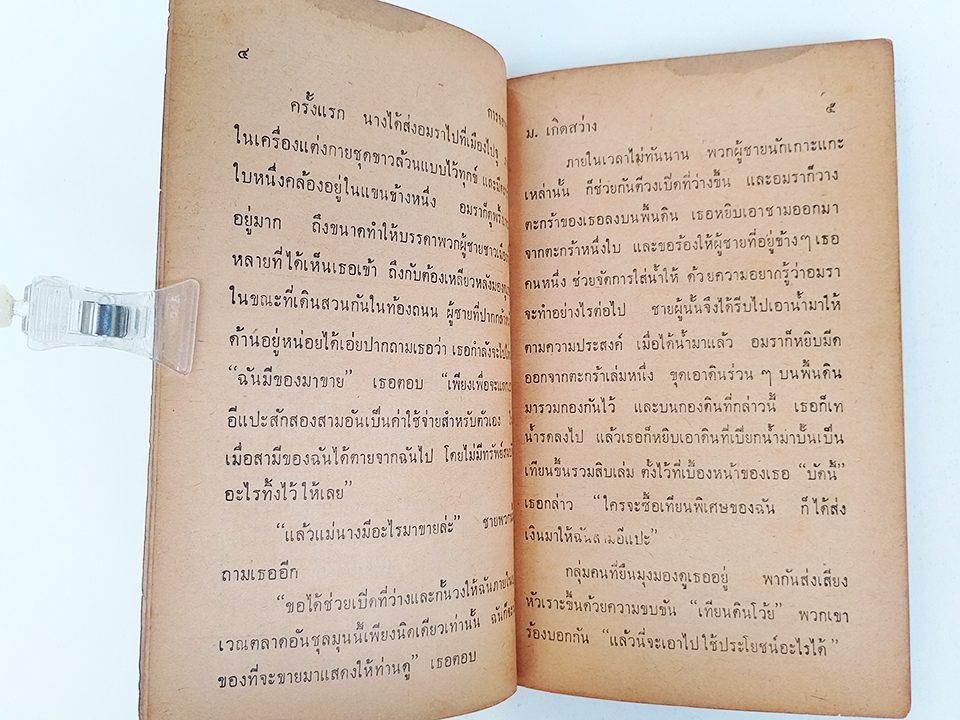 ๔
การ
ครั้งแรก นางได้ส่งอมราไปที่เมืองไปจู
ในเครื่องแต่งกายชุดขาวล้วนแบบไว้ทุกข์ และมี
ใบหนึ่งคล้องอยู่ในแขนข้างหนึ่ง อมราก็ดู
อยู่มาก ถึงขนาดทำให้บรรดาพวกผู้ชายชาว
หลายที่ได้เห็นเธอเข้า ถึงกับต้องเหลียวหลังมอง
ในขณะที่เดินสวนกันในท้องถนน ผู้ชายที่ปากกล้า
ด้านอยู่หน่อยได้เอ่ยปากถามเธอว่า เธอกำลังจะไป
“ฉันมีของมาขาย” เธอตอบ “เพียงเพื่อจะแลก
อีแปะสักสองสามอันเป็นค่าใช้จ่ายสำหรับตัวเอง
เมื่อสามีของฉันได้ตายจากฉันไป โดยไม่มีทรัพย์
อะไรทิ้งไว้ให้เลย”
“แล้วแม่นางมีอะไรมาขายล่ะ” ชายพวก
ถามเธออีก
“ขอได้ช่วยเปิดที่ว่างและกั้นวงให้ฉันภายใน
เวณตลาดอันชุลมุนนี้เพียงนิดเดียวเท่านั้น ฉันก็จะ
ของที่จะขายมาแสดงให้ท่านดู” เธอตอบ
๕
ม. เกิดสว่าง
ภายในเวลาไม่ทันนาน พวกผู้ชายนักเกาะแกะ
เหล่านั้น ก็ช่วยกันตีวงเปิดที่ว่างขึ้น และอมราก็วาง
ตะกร้าของเธอลงบนพื้นดิน เธอหยิบเอาชามออกมา
จากตะกร้าหนึ่งใบ และขอร้องให้ผู้ชายที่อยู่ข้างๆ เธอ
คนหนึ่ง ช่วยจัดการใส่น้ำให้ ด้วยความอยากรู้ว่าอมรา
จะทำอย่างไรต่อไป ชายผู้นั้นจึงได้รีบไปเอาน้ำมาให้
ตามความประสงค์ เมื่อได้น้ำมาแล้ว อมราก็หยิบมีด
ออกจากตะกร้าเล่มหนึ่ง ขุดเอาดินร่วน ๆ บนพื้นดิน
มารวมกองกันไว้ และบนกองดินที่กล่าวนี้ เธอก็เท
น้ำรดลงไป แล้วเธอก็หยิบเอาดินที่เปียกน้ำมาปั้นเป็น
เทียนขึ้นรวมสิบเล่ม ตั้งไว้ที่เบื้องหน้าของเธอ “บัดนี้”
เธอกล่าว “ใครจะซื้อเทียนพิเศษของฉัน ก็ได้ส่ง
เงินมาให้ฉันสามอีแปะ”
กลุ่มคนที่ยืนมุงมองดูเธออยู่ พากันส่งเสียง
หัวเราะขึ้นด้วยความขบขัน “เทียนดินโว้ย” พวกเขา
ร้องบอกกัน “แล้วนี่จะเอาไปใช้ประโยชน์อะไรได้”